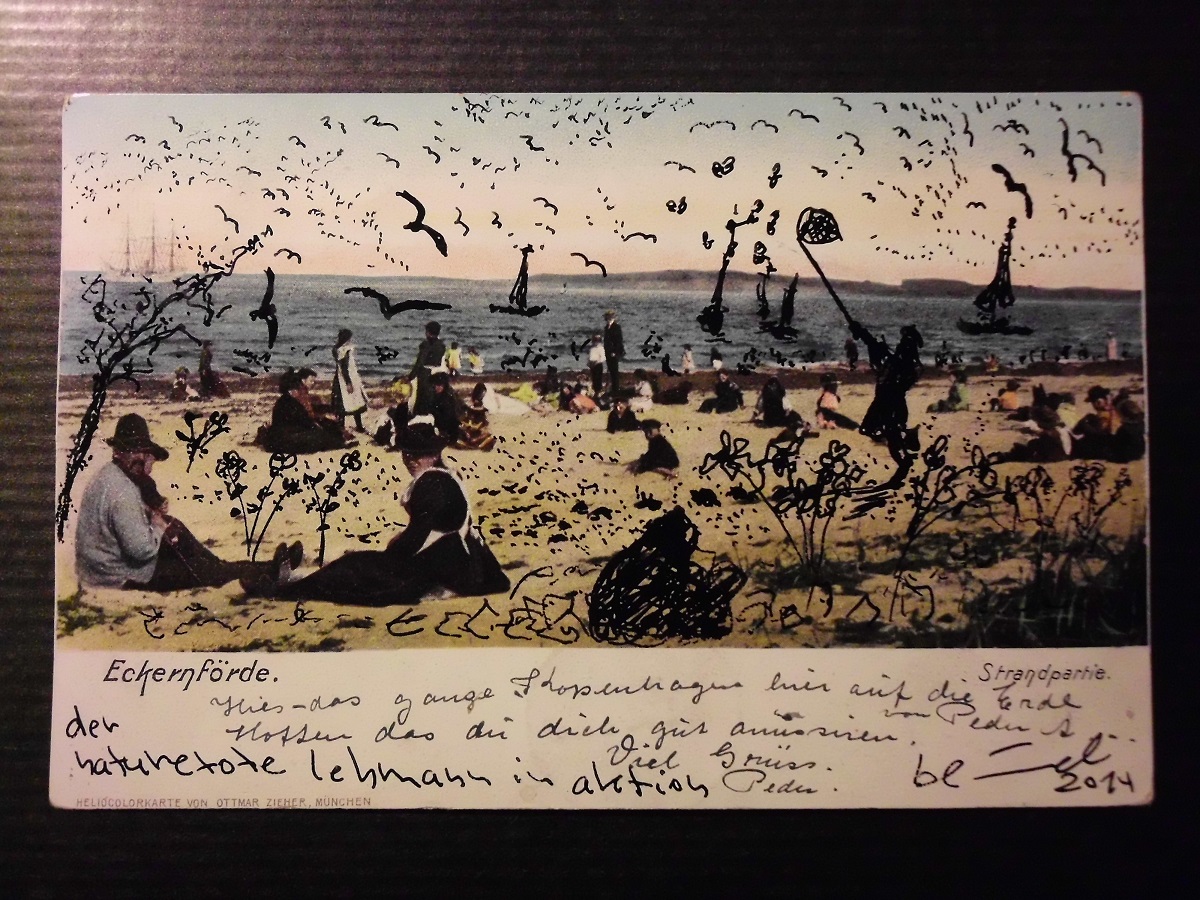 Eckernförde.
Strandpartie.
das ganze Kopenhagen hier auf die Erde
von Peder
Hoffen das du dich gut amüssiren.
der
naturetote lehmann in aktion
Viel Grüss.
Peder.
be
2014
HELIOCOLORKARTE VON OTTMAR ZIEHER, MÜNCHEN